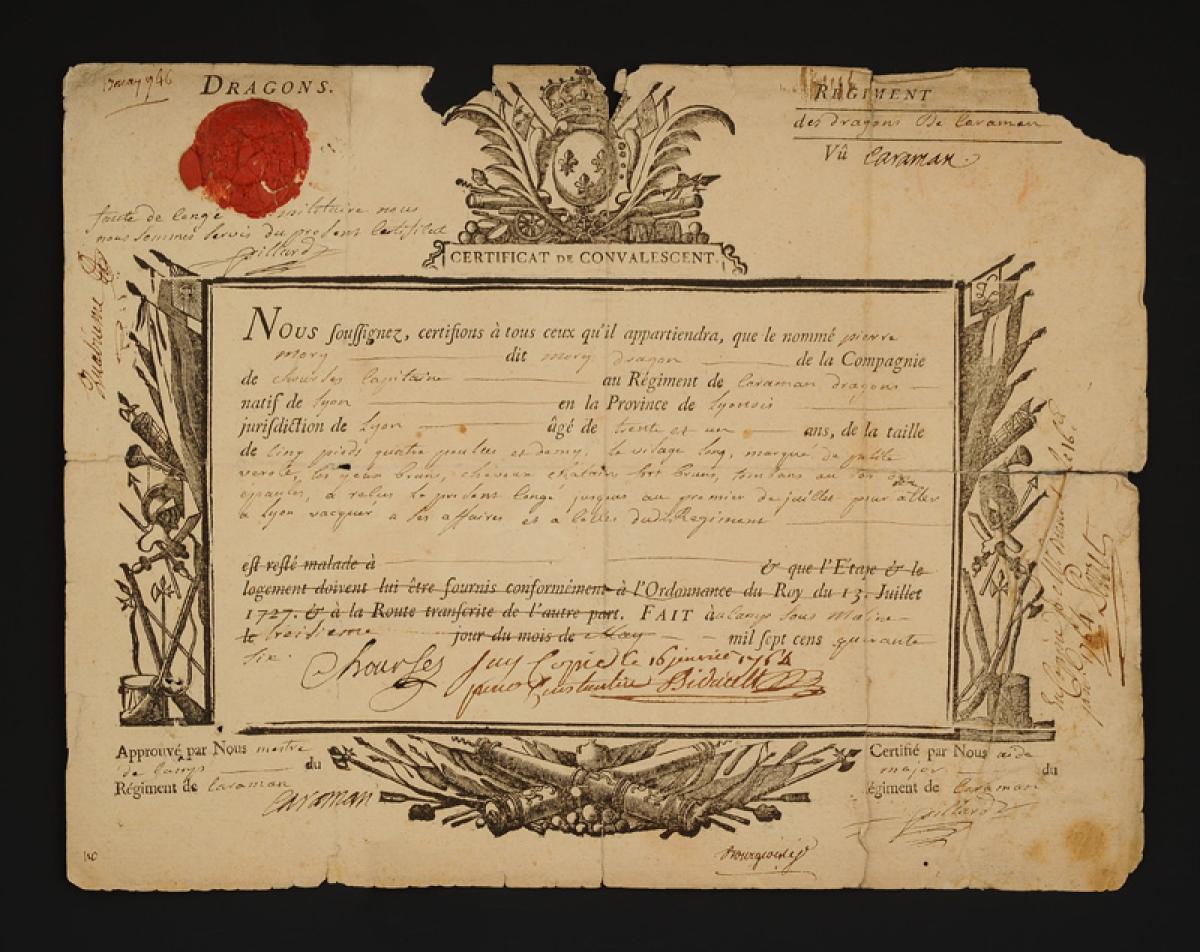 DRAGONS.
REGIMENT
des dragons De Caraman
Vû Caraman
faute de congé militaire nous
nous sommes servis du présent Certificat
Gillard
CERTIFICAT DE CONVALESCENT.
NOUS souſſignez, certifions à tous ceux qu'il appartiendra, que le nommé pierre
mory dit mory dragon de la Compagnie
de Chourses Capitaine au Régiment de Caraman dragons
natif de Lyon en la Province de Lyonois
jurifdiction de Lyon âgé de trente et un ans, de la taille
de Cinq pieds quatre pouces et demy, le visage long, marqué de petite
verole, les yeux bruns, cheveux chatain
epaules, a relus le present Congé jusques au premier de juillet pour aller
a Lyon vacquer a ses affaires et a celles dudit Regiment
eſt reſté malade à & que l'Etape & le
logement doivent lui être fournis conformément à l'Ordonnance du Roy du 13. Juillet
1727. & à la Route tranſcrite de l'autre part. FAIT à au Camp sous Maline
le treisieme jour du mois de May mil ſept cens quarante
six.
Chourses
16 janvier 1764
Bidault
Approuvé par Nous mestre
de Camp du
Régiment de Caraman
Caraman
Certifié par Nous aide
major du
égiment de Caraman
Gillard